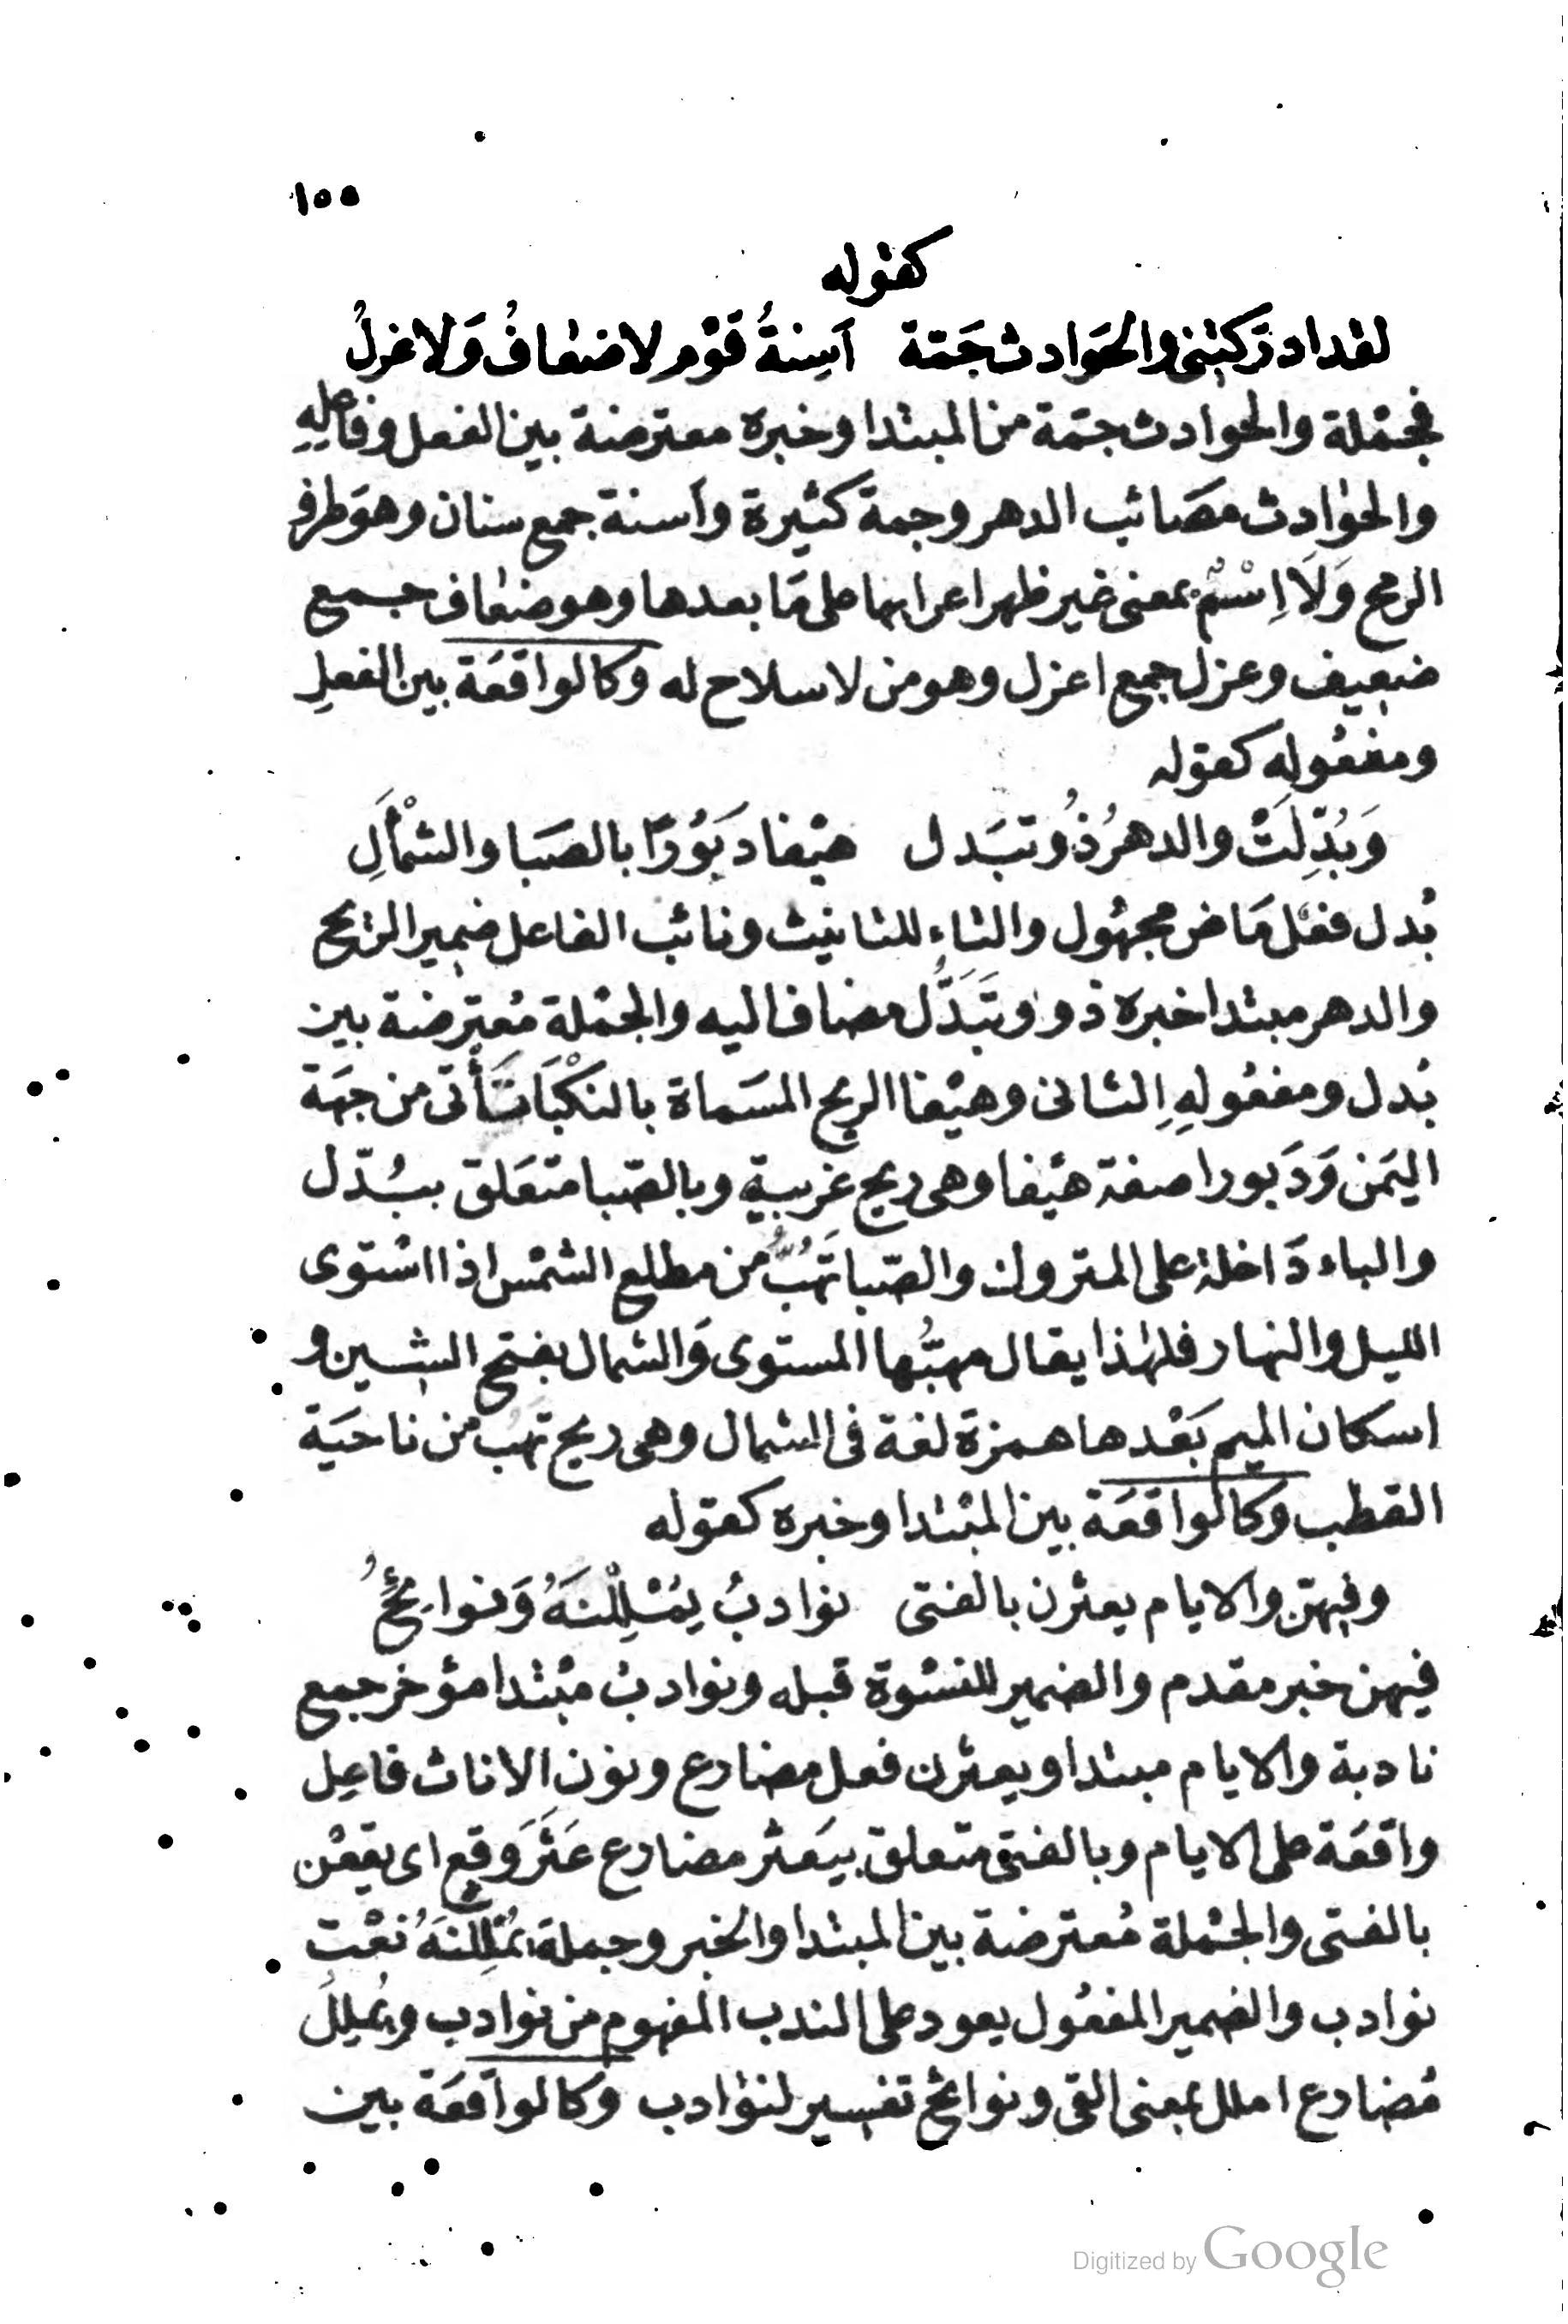 ١٥٥
كقوله
لقد ادركتنى والحَوادث جَمّة   اَسِنةُ قَوْم لا ضعافُ وَلا عزلُ
فجمْلة والحوادث جمّة من المبتدا وخبره معترضة بين الفعل وفاعِلِهِ
والحوادث مصَائب الدهر وجمة كثيرة واَسنة جمع سنان وهوَ طرف
الرمح وَلَا اِسْمْ بمعنى غير ظهر اعرابها على مَا بعدها وهو ضعاف جمع
ضعيف وعزل جمع اعزل وهو من لا سلاح له وكالواقعَة بين الفعلِ
ومفعُوله كقوله
وَبُدِّلَتْ والدهرُ ذُو تبَدل   هيْفا دَبَوُرًا بالصَبَا والشمْألِ
بُدل فعْل مَاض مجهُول والتاء للتانيث ونائب الفاعل ضمير الريح
والدهر مبتدا خبره ذو وتَبَدَّل مضاف اليه والجمْلة مُعترضة بين
بُدل ومفعُولهِ الثانى وهيْفا الريح المسَماة بالنَكْبَا تَأتى من جهَة
اليَمن وَدَبورا صفة هيْفا وهى ريح غربية وبالصّبا متعَلق ببُدّل
والباء دَاخلة على المتروك والصّبا تَهُبُّ من مطلع الشمْس اذا اسْتوى
الليل والنهار فلهٰذا يقال مهبُّها المستوى وَالشمال بفتح الشين و
اسكان الميم بَعْدها همزة لغة فى الشمال وهى ريح تهبُ من ناحيَة
القطب وكالواقعَة بين المبْتدا وخبره كقوله
وفيهنّ والايام يعثرن بالفتى   نوادبُ يُمْلِلْنَهُ وَنوائِحُ
فيهن خبر مقدم والضمير للنسْوة قبله ونوادبُ مبْتدا مؤخر جمع
نادبة والايام مبتدا ويعثرن فعل مضارع ونون الاناث فاعِل
واقعَة على الايام وبالفتى متعلق بيَعثر مضارع عَثَرَ وقع اى يقعْن
بالفتى والجمْلة مُعترضة بين المبتدا والخبر وجملة يُمْلِلْنَهُ نعْت
نوادب والضمير المفعُول يعود على الندب المفهوم من نوادب ويُمْلِلُ
مُضارع املل بمعنى القى ونوائح تفسير لنوادب وكالواقعَة بين
Digitized by Google